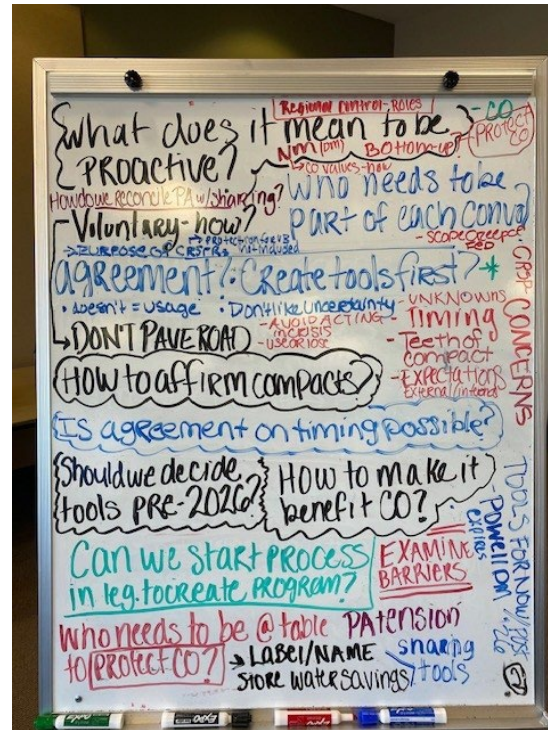 Regional control - Roles
What does it mean to be
PROACTIVE?
NM (DM) Bottom-up
- CO
PROTECT CO
How do we reconcile PA w/ sharing?
↳ CO values - how
Who needs to be
part of each convo
- Voluntary - how?
- scope creep
→ PURPOSE OF CRSP
agreement? Create tools first? → *
• doesn't = usage • Don't like uncertainty
↳ DON'T PAVE ROAD
- AVOID ACTING
IN CRISIS
- USE OR LOSE
CRSP CONCERNS
- UNKNOWNS
- Timing
- Teeth of
compact
- EXPECTATIONS
EXTERNAL/internal
HOW to affirm compacts?
Is agreement on timing possible?
Should we decide
tools PRE-2026?
HOW to make it
benefit CO?
TOOLS FOR NOW/POST '26
- Powell DM
expires
Can we start process
in leg. to create program?
EXAMINE
BARRIERS
Who needs to be @ table
to PROTECT CO?
PA tension
sharing
tools
→ LABEL/NAME
store water savings